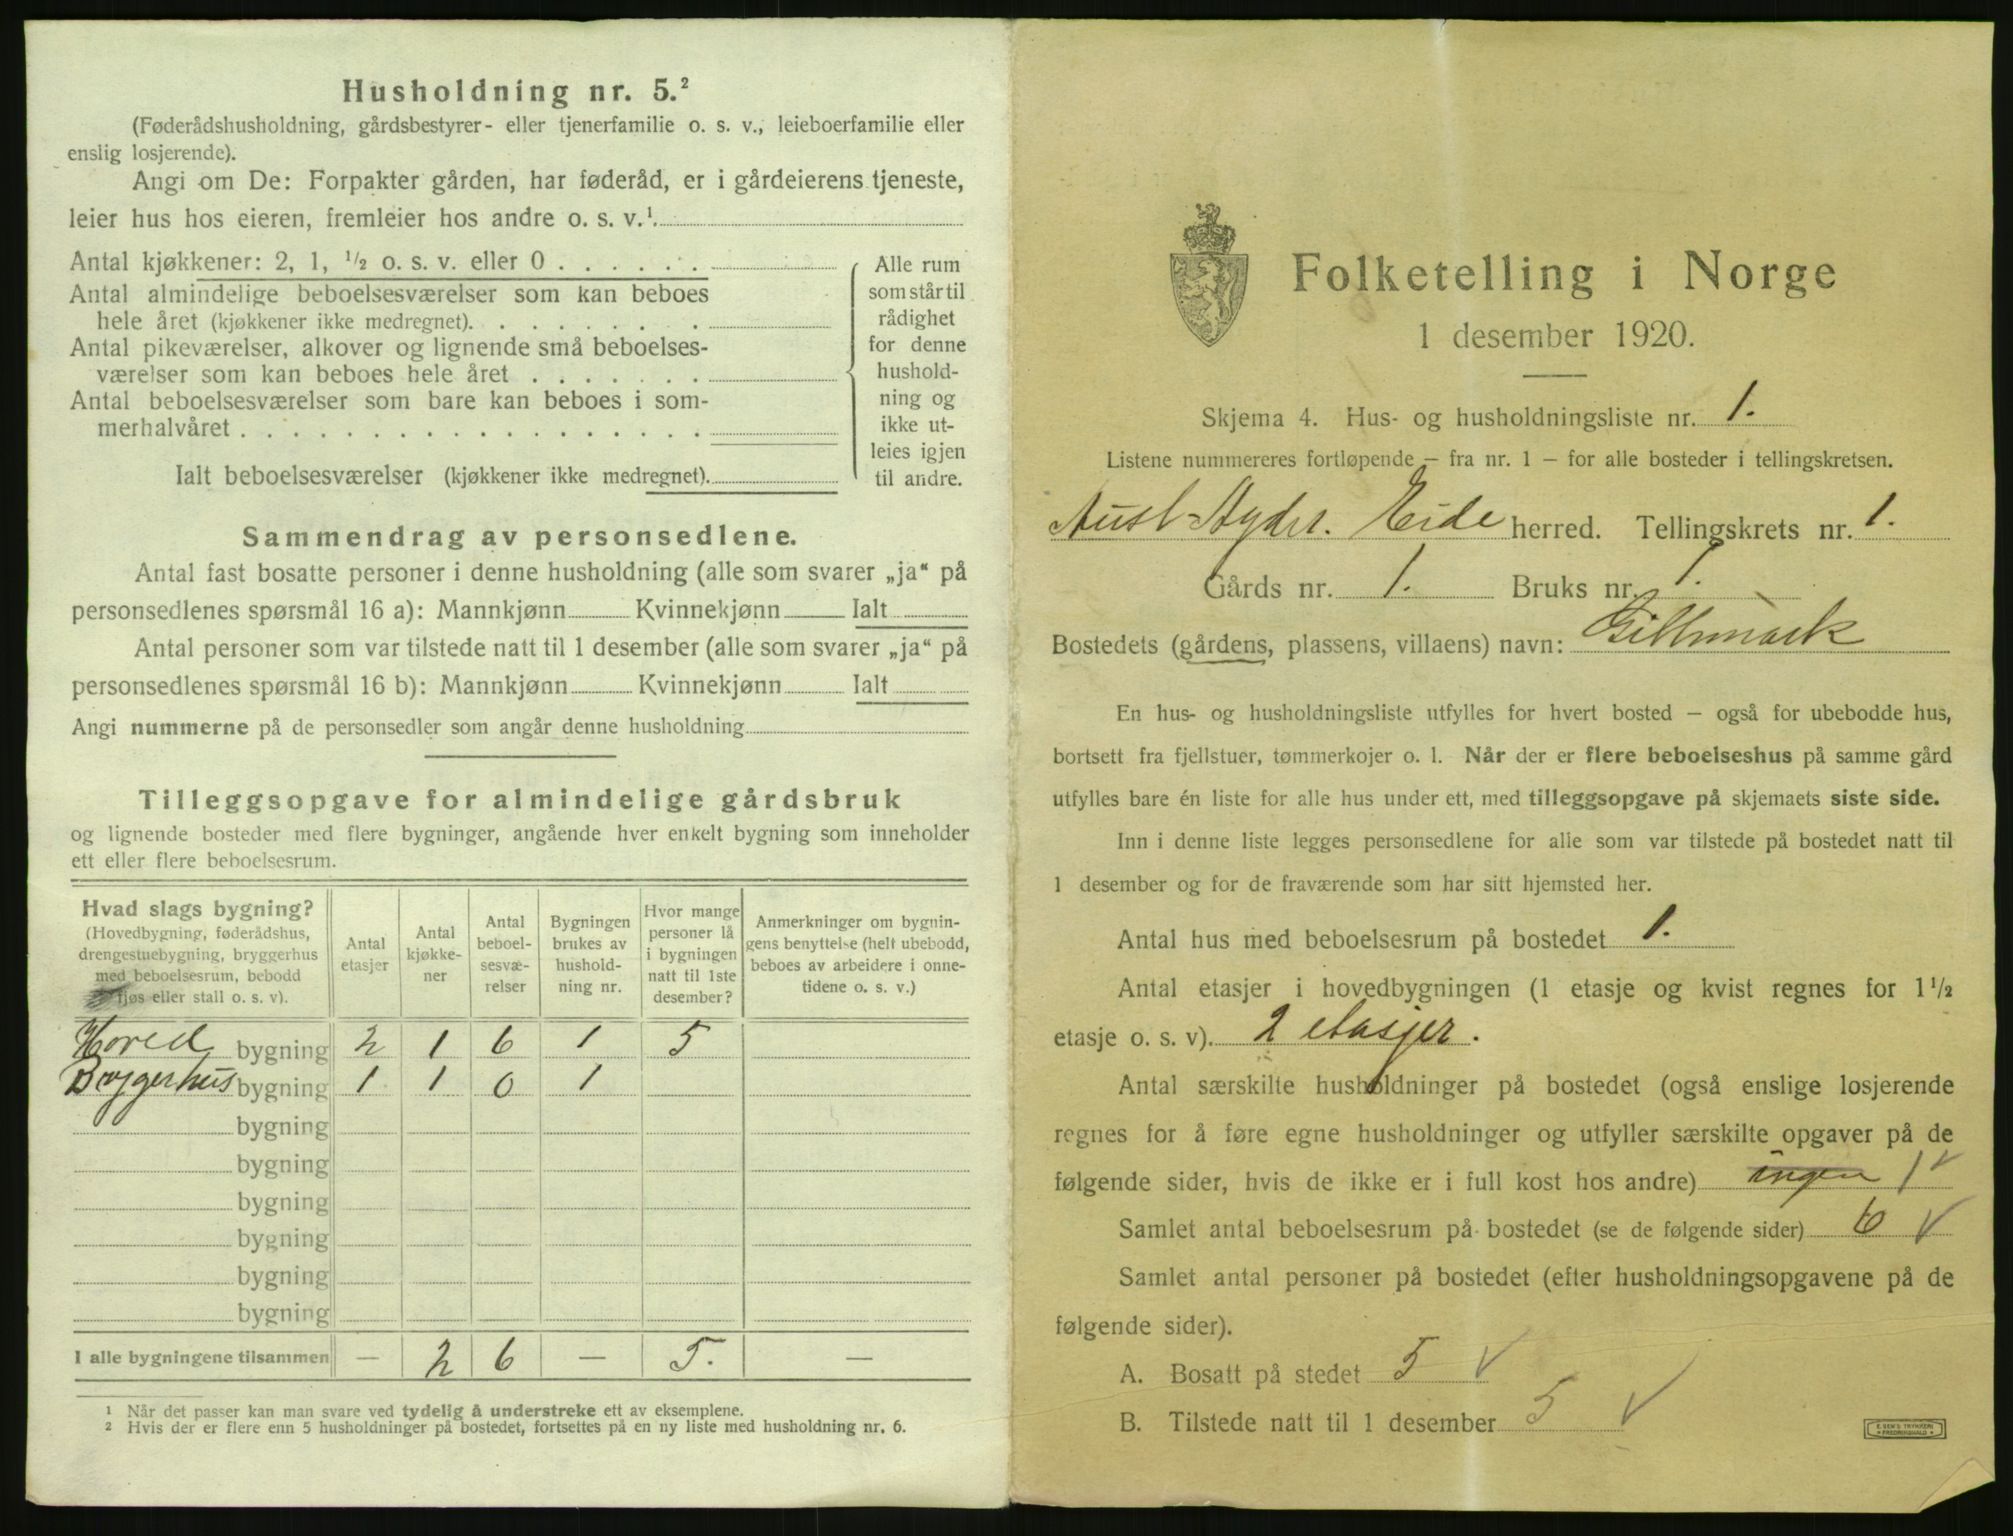 Husholdning nr. 5.²
(Føderådshusholdning, gårdsbestyrer- eller tjenerfamilie o. s. v., leieboerfamilie eller
enslig losjerende).
Angi om De: Forpakter gården, har føderåd, er i gårdeierens tjeneste,
leier hus hos eieren, fremleier hos andre o. s. v.¹
Antal kjøkkener: 2, 1, ½ o. s. v. eller 0 . . . . . .
Antal almindelige beboelsesværelser som kan beboes
hele året (kjøkkener ikke medregnet). . . . . . . . .
Antal pikeværelser, alkover og lignende små beboelses-
værelser som kan beboes hele året . . . . . . .
Antal beboelsesværelser som bare kan beboes i som-
merhalvåret . . . . . . . . . . . . . . . . . .
Ialt beboelsesværelser (kjøkkener ikke medregnet).
Alle rum
som står til
rådighet
for denne
hushold-
ning og
ikke ut-
leies igjen
til andre.
Sammendrag av personsedlene.
Antal fast bosatte personer i denne husholdning (alle som svarer „ja“ på
personsedlenes spørsmål 16 a): Mannkjønn Kvinnekjønn Ialt
Antal personer som var tilstede natt til 1 desember (alle som svarer „ja“ på
personsedlenes spørsmål 16 b): Mannkjønn Kvinnekjønn Ialt
Angi nummerne på de personsedler som angår denne husholdning
Tilleggsopgave for almindelige gårdsbruk
og lignende bosteder med flere bygninger, angående hver enkelt bygning som inneholder
ett eller flere beboelsesrum.
Hvad slags bygning?
(Hovedbygning, føderådshus,
drengestuebygning, bryggerhus
med beboelsesrum, bebodd
fjøs eller stall o. s. v).
Antal
etasjer
Antal
kjøkke-
ner
Antal
beboel-
sesvæ-
relser
Bygningen
brukes av
hushold-
ning nr.
Hvor mange
personer lå
i bygningen
natt til 1ste
desember?
Anmerkninger om bygnin-
gens benyttelse (helt ubebodd,
beboes av arbeidere i onne-
tidene o. s. v.)
Hoved bygning 2 1 6 1 5
Bryggerhus bygning 1 1 0 1
bygning
bygning
bygning
bygning
bygning
bygning
I alle bygningene tilsammen — 2 6 — 5. —
¹ Når det passer kan man svare ved tydelig å understreke ett av eksemplene.
² Hvis der er flere enn 5 husholdninger på bostedet, fortsettes på en ny liste med husholdning nr. 6.
Folketelling i Norge
1 desember 1920.
Skjema 4. Hus- og husholdningsliste nr. 1.
Listene nummereres fortløpende — fra nr. 1 — for alle bosteder i tellingskretsen.
Aust-Agder. Eide herred. Tellingskrets nr. 1.
Gårds nr. 1. Bruks nr. 1.
Bostedets (gårdens, plassens, villaens) navn:
En hus- og husholdningsliste utfylles for hvert bosted — også for ubebodde hus,
bortsett fra fjellstuer, tømmerkojer o. l. Når der er flere beboelseshus på samme gård
utfylles bare én liste for alle hus under ett, med tilleggsopgave på skjemaets siste side.
Inn i denne liste legges personsedlene for alle som var tilstede på bostedet natt til
1 desember og for de fraværende som har sitt hjemsted her.
Antal hus med beboelsesrum på bostedet 1.
Antal etasjer i hovedbygningen (1 etasje og kvist regnes for 1½
etasje o. s. v). 2 etasjer.
Antal særskilte husholdninger på bostedet (også enslige losjerende
regnes for å føre egne husholdninger og utfyller særskilte opgaver på de
følgende sider, hvis de ikke er i full kost hos andre) ingen 1 ✓
Samlet antal beboelsesrum på bostedet (se de følgende sider) 6 ✓
Samlet antal personer på bostedet (efter husholdningsopgavene på de
følgende sider).
A. Bosatt på stedet 5 ✓
B. Tilstede natt til 1 desember 5 ✓